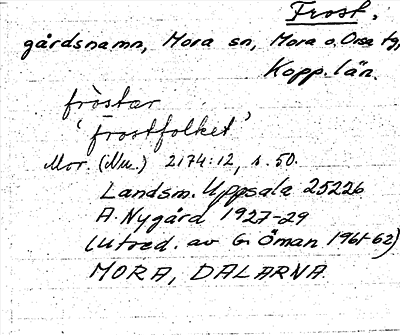 Frost,
gårdsnamn, Mora sn, Mora o. Orsa tg,
Kopp. län.
fròstar
'frostfolket'
Mor. (Nu.) 2174:12, s. 50.
Landsm. Uppsala 25226
A. Nygård 1927-29
(utred. av G. Öman 1961-62)
MORA, DALARNA.